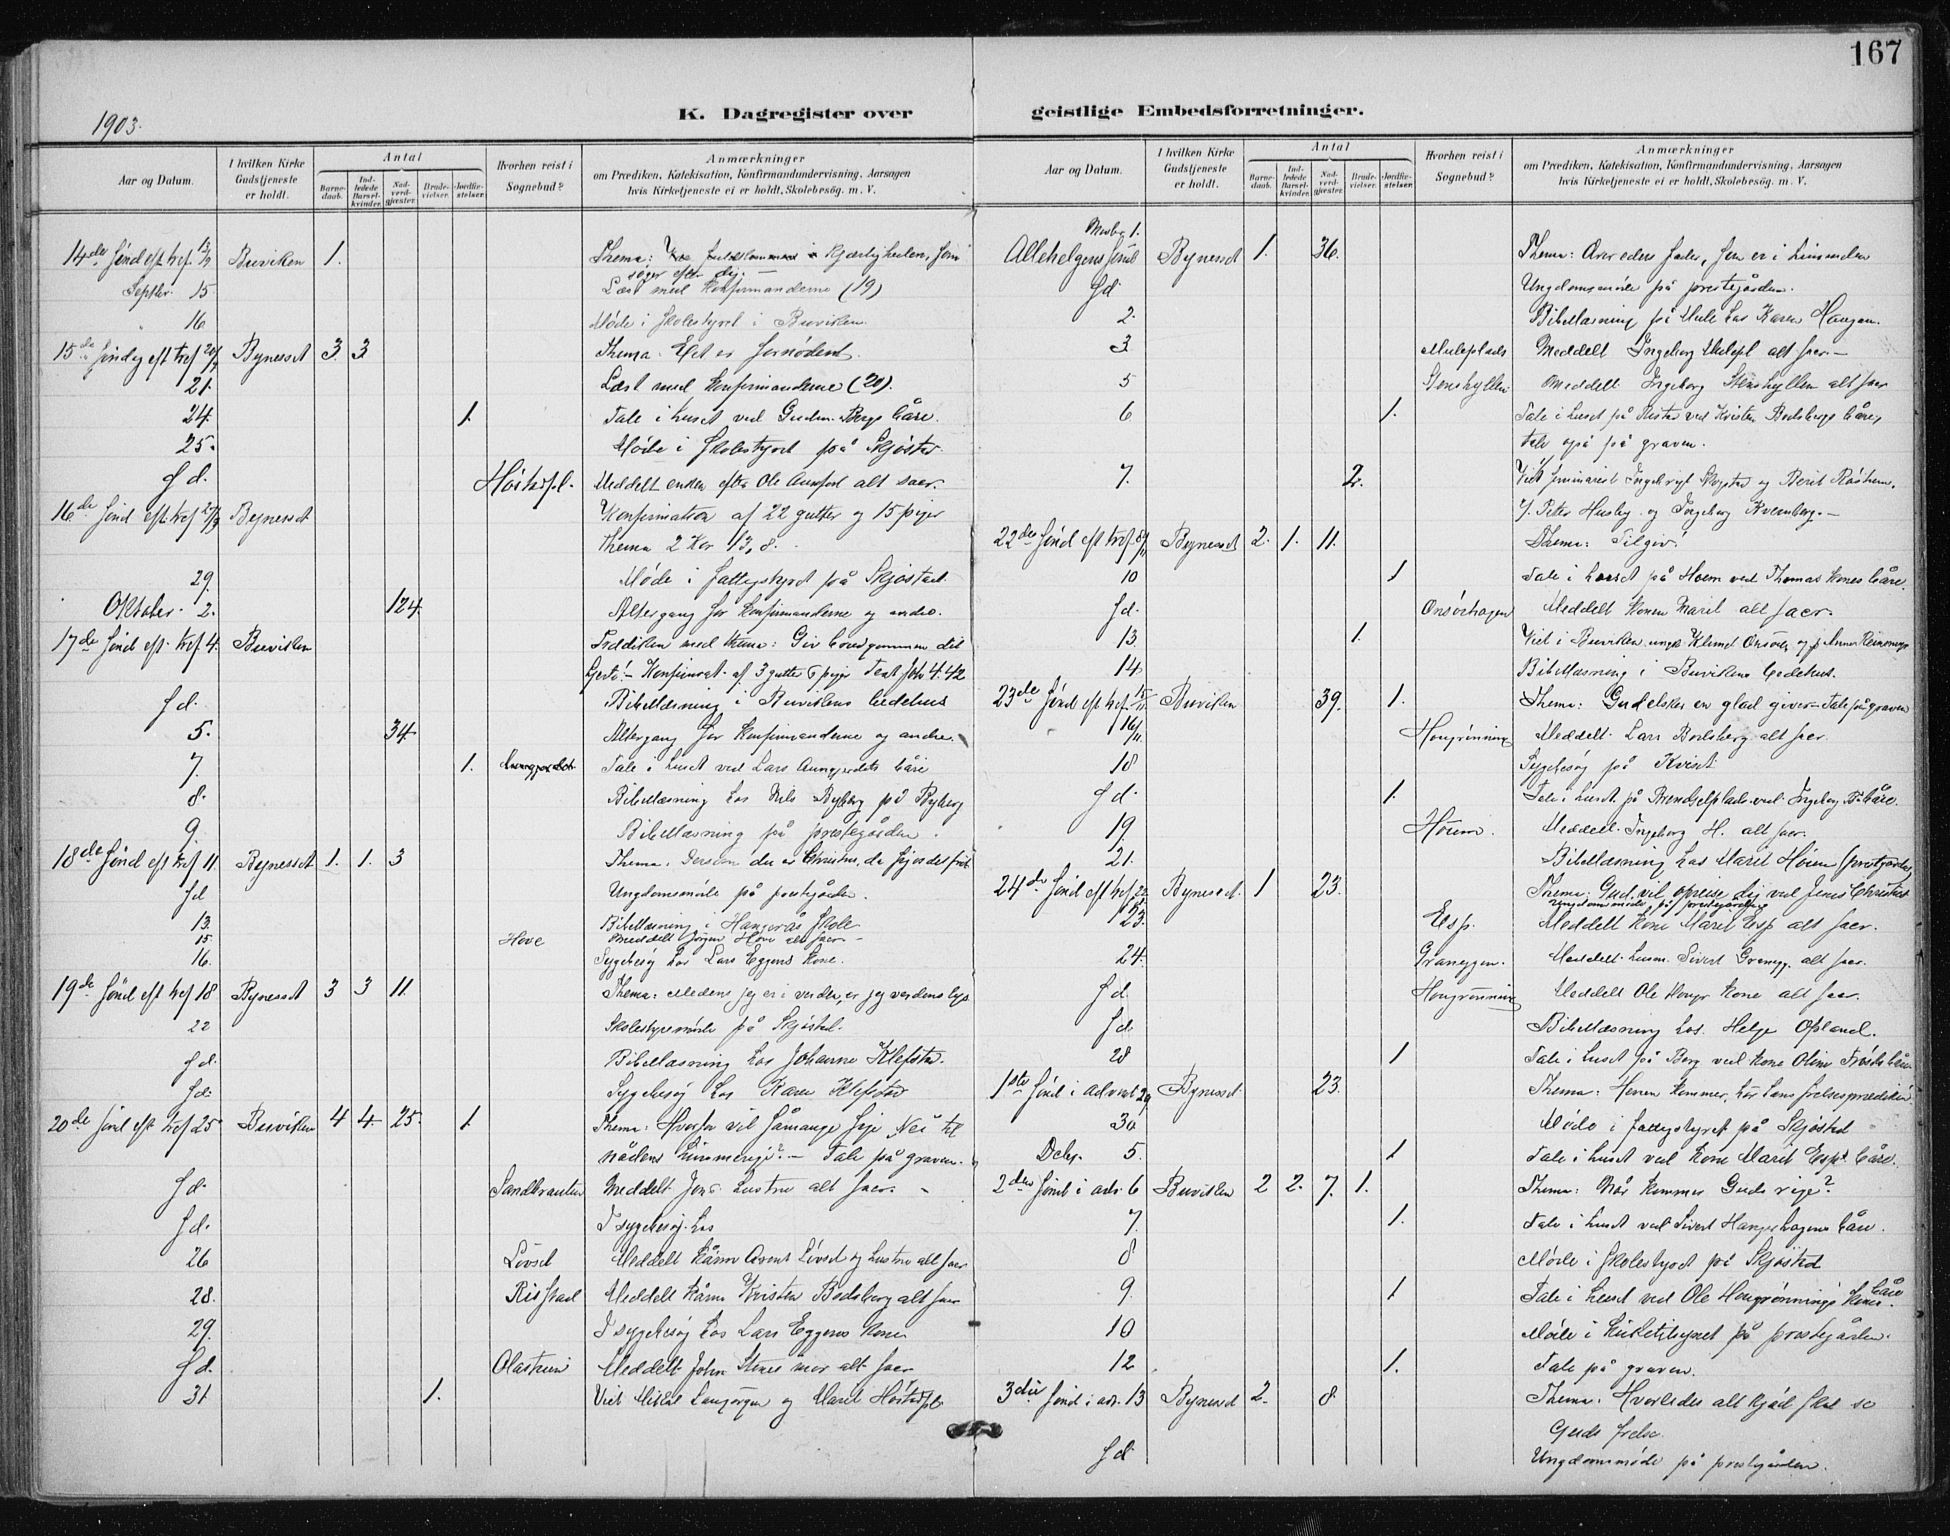 167
1903.
K. Dagregister over geistlige Embedsforretninger.
Aar og Datum.
I hvilken Kirke Gudstjeneste er holdt.
Antal
Barnedaab.
Indledede Barselkvinder.
Nadverdgjæster.
Brudevielser.
Jordfæstelser.
Hvorhen reist i Sognebud?
Anmærkninger
om Prædiken, Katekisation, Konfirmandundervisning, Aarsagen
hvis Kirketjeneste ei er holdt, Skolebesøg. m. V.
14de Sønd eft tref. 13/9 Buviken 1. Thema: Kjærligheden, som
søger efter dig. —
Septbr. 15 Læst med Konfirmanderne (19)
" 16 Møde i Skolestyret i Buviken.
15de Søndag eft tref 20/9 Bynesset 3. 3 Thema: Et er fornødent.
21. Læst med Konfirmanderne (20).
24. 1. Tale i huset ved Gudm. Bergs båre.
25. Møde i Skolestyret på Skjøstad
S d. Høstadpl. Meddelt enken efter Ole alt saer.
16de Sønd eft. tref 27/9 Bynesset Konfirmation af 22 gutter og 15 piger
Thema 2 Kor 13, 8.
29. Møde i fattigstyret på Skjøstad.
Oktober. 2. 124. Altergang for Konfirmanderne og andre.
17de Sønd eft. tref. 4. Buviken med thema: Giv brudgommen dit
hjerte! — Konfirmat. af 3 gutter 6 piger Text Joh 4.42
S d. Bibellæsning i Buvikens bedehus
5. 34. Altergang for Konfirmanderne og andre.
7. 1. Tale i huset ved Lars Aungjerdets båre
8. Bibellæsning hos Nels Byberg på Byberg
9. Bibellæsning på prestegården.
18de Sønd eft tref 11. Bynesset 1. 1. 3 Thema: Dersom du er Christus, da sig os det frit
S d Ungdomsmøde på prestegården.
13. Bibellæsning i Hangerås Skole
15. Hove Meddelt Jørgen Hove alt saer —
16. Sygebesøg hos Lars Eggens kone.
19de Sønd eft tref 18 Bynesset 3 3 11. Thema: Medens jeg er i verden, er jeg verdens lys
22 Skolestyremøde på Skjøstad.
S d. Bibellæsning hos Johanne Klefstad.
S d. Sygebesøg hos Karen Klefstad
20de Sønd eft tref 25 Buviken 4 4. 25. 1. Thema: Hvorfor vil såmange sige Nei til
nådens himmerige? — Tale på graven.
S d. Sandbrauten Meddelt Jens hustru alt saer. —
S d. I sygebesøg hos
26 Løvset Meddelt kårm Arent Løvset og hustru alt saer
28. Ristad Meddelt kårm Kristen Bodsberg alt saer
29. I sygebesøg hos Lars Eggens kone
S d. Meddelt John Stenes mor alt saer
31 1. Viet Mikal Langørgen og Marit Høstadpl.
Aar og Datum.
I hvilken Kirke Gudstjeneste er holdt.
Antal
Barnedaab.
Indledede Barselkvinder.
Nadverdgjæster.
Brudevielser.
Jordfæstelser.
Hvorhen reist i Sognebud?
Anmærkninger
om Prædiken, Katekisation, Konfirmandundervisning, Aarsagen
hvis Kirketjeneste ei er holdt, Skolebesøg. m. V.
Novbr 1.
Allehelgens Sønd Bynesset 1. 36. Thema: Ærer eders fader, som er i himmelen
S d. Ungdomsmøde på prestegården.
2. Bibellæsning på Mule hos Karen Haugan.
3 Muleplads Meddelt Ingeborg Mulepl alt saer. —
5 Stenshyllen Meddelt Ingeborg Stenshyllen alt saer
6 1. Tale i huset på Ristad ved Kristen Bodsbergs båre,
tale også på graven.
7. 2. Viet seminarist Ingebrigt Skogstad og Berit Røstum.
2/. Peter Husby og Ingeborg Kvemberg. —
22de Sønd eft tref. 8/11 Bynesset 2. 1. 11. Thema: Tilgiv!
10 1 Tale i huset på Hoem ved Thomas kones båre.
S d. Onsørhagen Meddelt konen Marit alt saer.
13. 1. Viet i Buviken ungk Klemet Onsøien og p. Anna
14. Bibellæsning i Buvikens bedehus.
23de Sønd eft tref. 15/11 Buviken 39. 1. Thema: Gud elsker en glad giver — Tale på graven
16/11. Haugrønning Meddelt Lars Bodsberg alt saer.
18 Sygebesøg på Kvist
S d. 1. Tale i huset på Brendselplads ved Ingebg B. båre.
19. Høiem. Meddelt Ingeborg H. alt saer.
21. Bibellæsning hos Marit Høiem (prestgården)
24de Sønd eft tref. 22/11 Bynesset. 1 23. Thema: Gud vil opreise dig ved Jesus Christus
Ungdomsmøde på prestegården
23. Esp. Meddelt kone Marit Esp alt saer.
24. Graneggen. Meddelt husm. Sivert Granegg. alt saer.
S d. Haugrønning Meddelt Ole Haugr kone alt saer.
S d. Bibellæsning hos Helge Opland.
28 1 Tale i huset på Berg ved kone Oline båre
1ste Sønd i advent 29 Bynesset 23. Thema: Herren kommer, hør hans frelsesprædiken
30 Møde i fattigstyret på Skjøstad
Debr. 5. 1 Tale i huset ved kone Marit Esps båre.
2den Sønd i adv. 6 Buviken 2 2. 7. 1. Thema: Når kommer Guds rige?
7. 1. Tale i huset ved Sivert båre.
8 Møde i Skolestyret på Skjøstad
9. 1 Tale i huset ved Ole Haugrønnings kones båre
10 Møde i Kirketilsynet på prestegården.
12 1. Tale på graven.
3die Sønd i adv. 13 Bynesset 2. 8. Thema: Hvorledes alt kjød skal se
Guds frelse.
S d. Ungdomsmøde på prestegården.